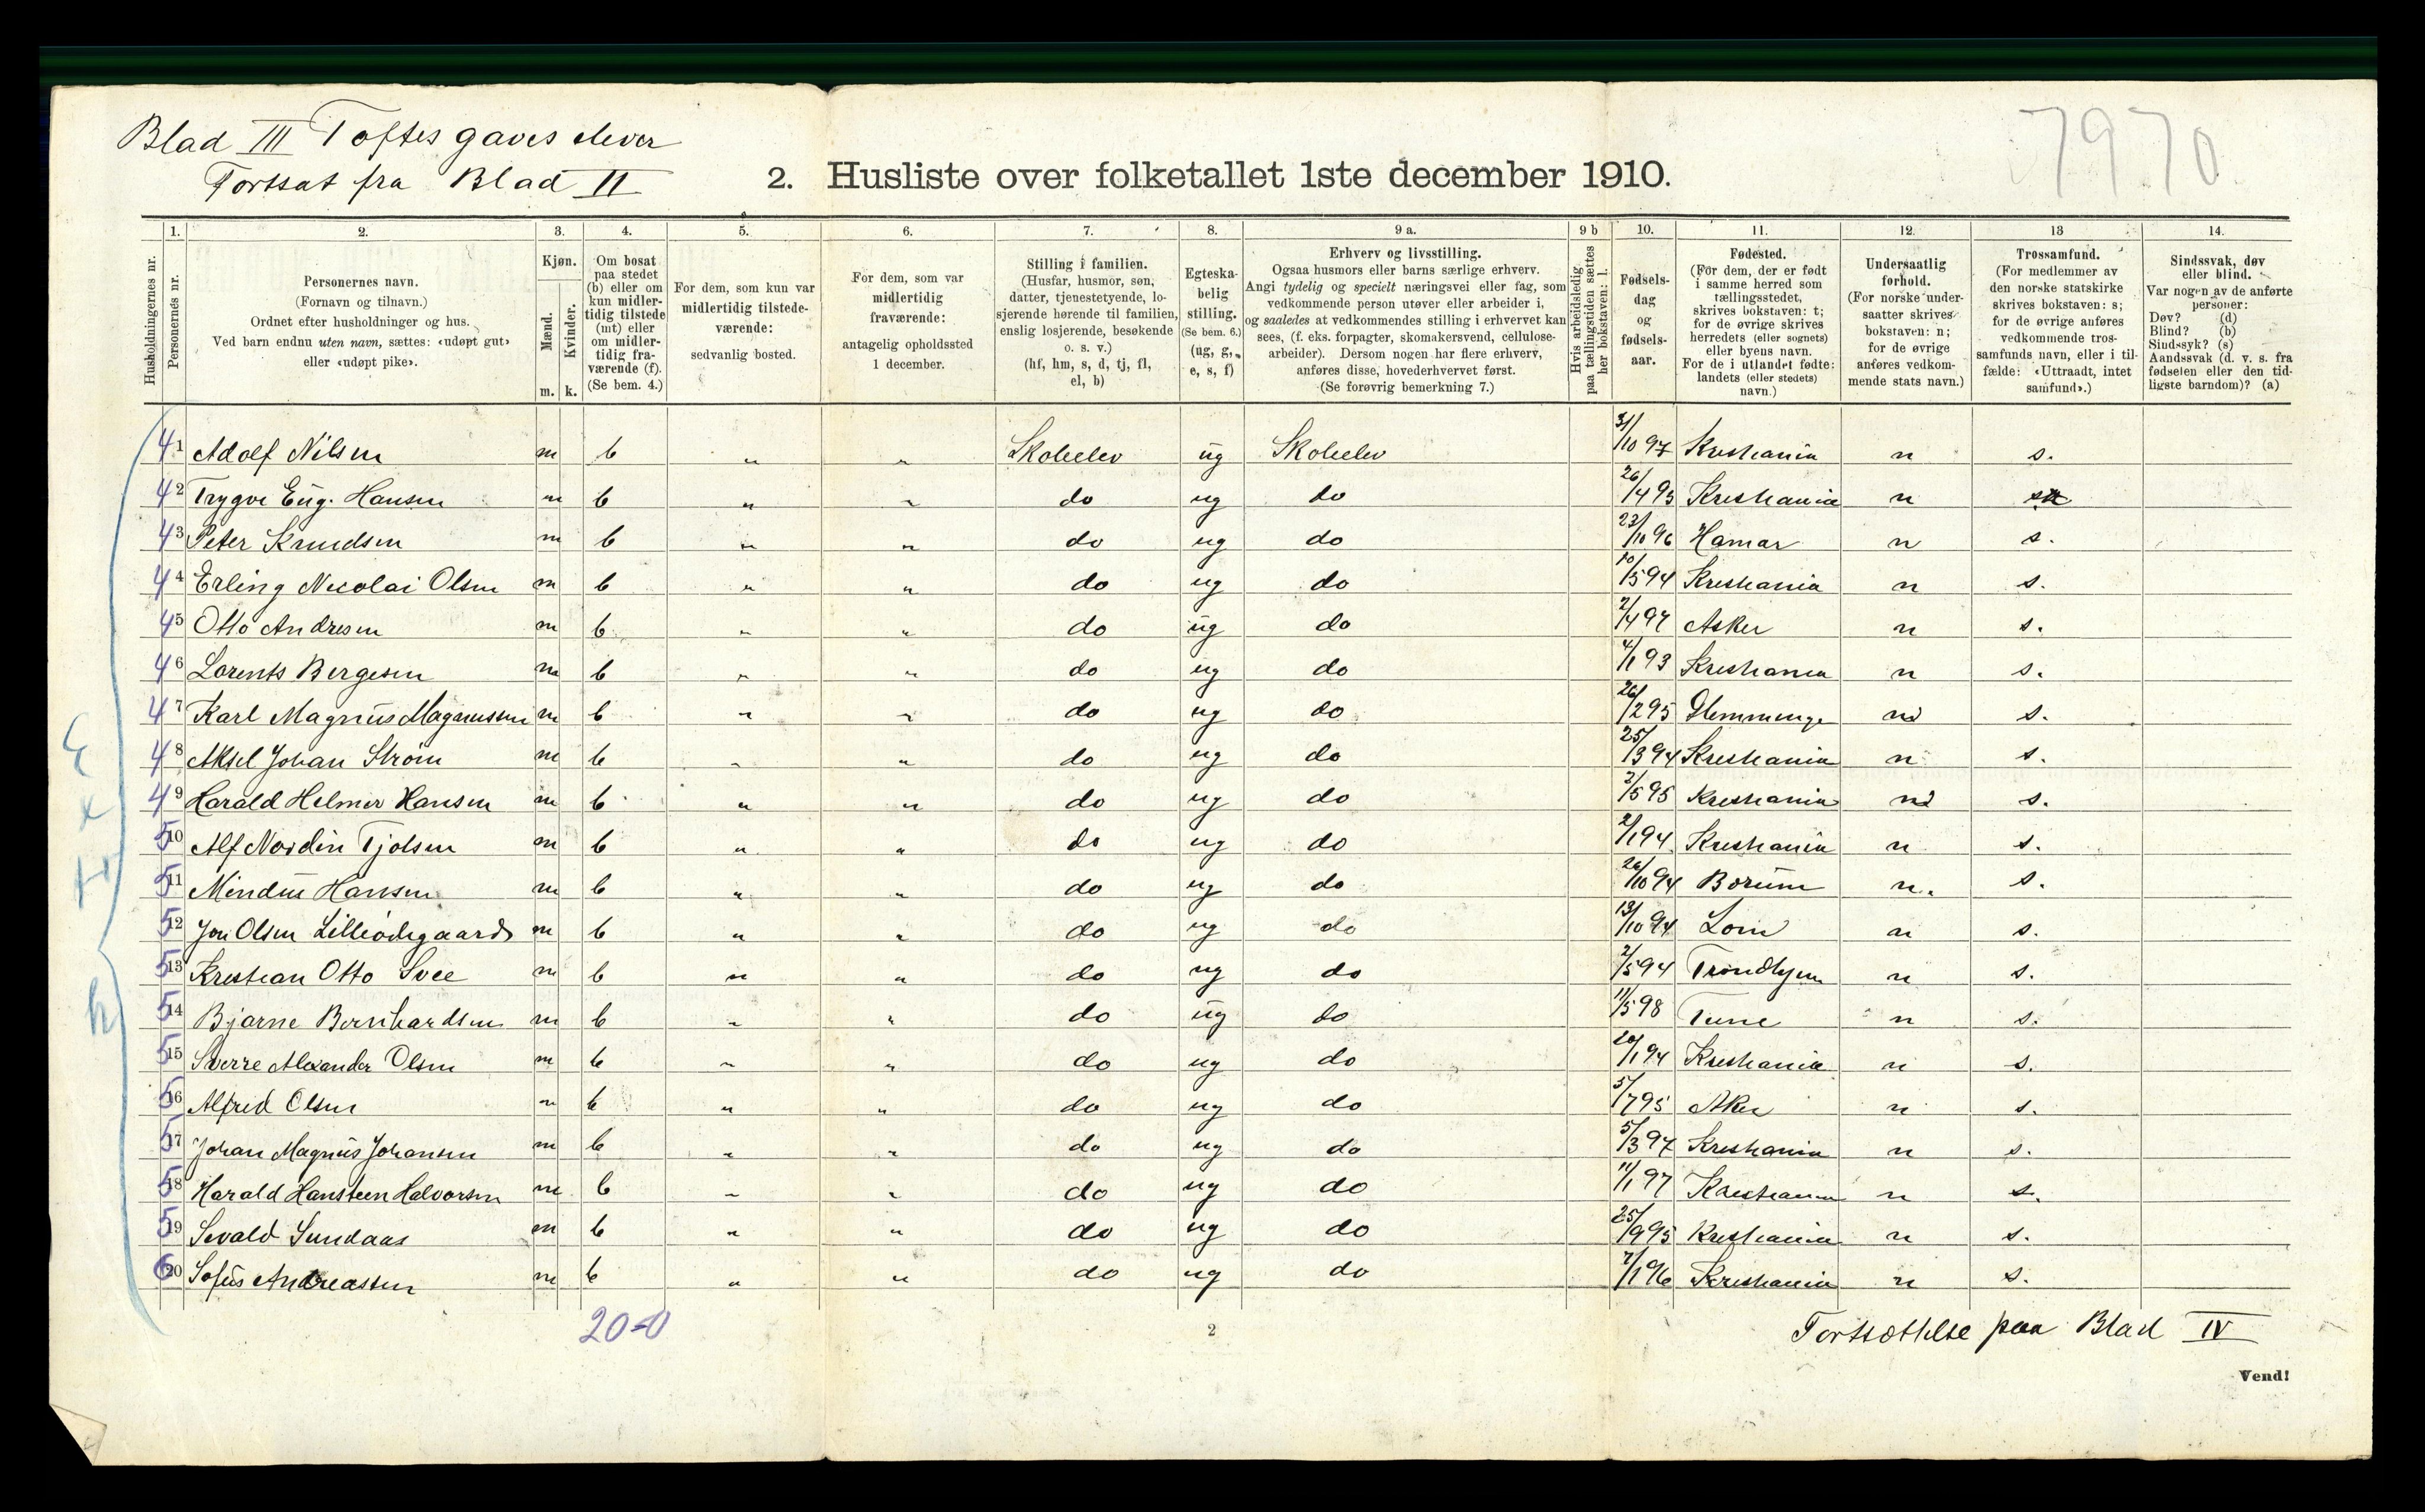 Blad III Toftes gaves elever
Fortsat fra Blad II
7970
2. Husliste over folketallet 1ste december 1910.
Husholdningernes nr.
1. Personernes nr.
2. Personernes navn.
(Fornavn og tilnavn.)
Ordnet efter husholdninger og hus.
Ved barn endnu uten navn, sættes: «udøpt gut»
eller «udøpt pike».
3. Kjøn.
Mænd. m.
Kvinder. k.
4. Om bosat
paa stedet
(b) eller om
kun midler-
tidig tilstede
(mt) eller
om midler-
tidig fra-
værende (f).
(Se bem. 4.)
5. For dem, som kun var
midlertidig tilstede-
værende:
sedvanlig bosted.
6. For dem, som var
midlertidig
fraværende:
antagelig opholdssted
1 december.
7. Stilling i familien.
(Husfar, husmor, søn,
datter, tjenestetyende, lo-
sjerende hørende til familien,
enslig losjerende, besøkende
o. s. v.)
(hf, hm, s, d, tj, fl,
el, b)
8. Egteska-
belig
stilling.
(Se bem. 6.)
(ug, g,
e, s, f)
9 a. Erhverv og livsstilling.
Ogsaa husmors eller barns særlige erhverv.
Angi tydelig og specielt næringsvei eller fag, som
vedkommende person utøver eller arbeider i,
og saaledes at vedkommendes stilling i erhvervet kan
sees, (f. eks. forpagter, skomakersvend, cellulose-
arbeider). Dersom nogen har flere erhverv,
anføres disse, hovederhvervet først.
(Se forøvrig bemerkning 7.)
9 b Hvis arbeidsledig
paa tællingstiden sættes
her bokstaven: l.
10. Fødsels-
dag
og
fødsels-
aar.
11. Fødested.
(For dem, der er født
i samme herred som
tællingsstedet,
skrives bokstaven: t;
for de øvrige skrives
herredets (eller sognets)
eller byens navn.
For de i utlandet fødte:
landets (eller stedets)
navn.)
12. Undersaatlig
forhold.
(For norske under-
saatter skrives
bokstaven: n;
for de øvrige
anføres vedkom-
mende stats navn.)
13 Trossamfund.
(For medlemmer av
den norske statskirke
skrives bokstaven: s;
for de øvrige anføres
vedkommende tros-
samfunds navn, eller i til-
fælde: «Uttraadt, intet
samfund».)
14. Sindssvak, døv
eller blind.
Var nogen av de anførte
personer:
Døv? (d)
Blind? (b)
Sindssyk? (s)
Aandssvak (d. v. s. fra
fødselen eller den tid-
ligste barndom)? (a)
41 Adolf Nilsen m b „ „ Skoleelev ug Skoleelev 31/10 97 Kristiania n s.
42 Trygve Eug. Hansen m b „ „ do ug do 26/4 95 Kristiania n
43 Peter Knudsen m b „ „ do ug do 23/10 96 Hamar n s.
44 Erling Nicolai Olsen m b „ „ do ug do 10/5 94 Kristiania n s.
45 Otto Andresen m b „ „ do ug do 2/4 97 Asker n s.
46 Lorents Bergesen m b „ „ do ug do 4/1 93 Kristiania n s.
47 Karl Magnus Magnussen m b „ „ do ug do 26/2 95 Glemminge n s.
48 Aksel Johan Strøm m b „ „ do ug do 25/3 94 Kristiania n s.
49 Harald Helmer Hansen m b „ „ do ug do 2/5 95 Kristiania n s.
510 Alf Nordin Tjølsen m b „ „ do ug do 2/1 94 Kristiania n s.
511 Mindus Hansen m b „ „ do ug do 26/10 94 Bærum n. s.
512 Jon Olsen Lilleødegaard m b „ „ do ug do 13/10 94 Lom n s.
513 Kristian Otto Svee m b „ „ do ug do 2/5 94 Trondhjem n s.
514 Bjarne Bernhardsen m b „ „ do ug do 11/5 98 Tune n s.
515 Sverre Alexander Olsen m b „ „ do ug do 20/1 94 Kristiania n s.
516 Alfred Olsen m b „ „ do ug do 5/7 95 Aker n s.
517 Johan Magnus Johansen m b „ „ do ug do 5/3 97 Kristiania n s.
518 Harald Hansteen Halvorsen m b „ „ do ug do 11/1 97 Kristiania n s.
519 Sevald Sundaas m b „ „ do ug do 25/9 95 Kristiania n s.
620 Sofus Andreassen m b „ „ do ug do 7/1 96 Kristiania n s.
20-0
2
Fortsættelse paa Blad IV
Vend!